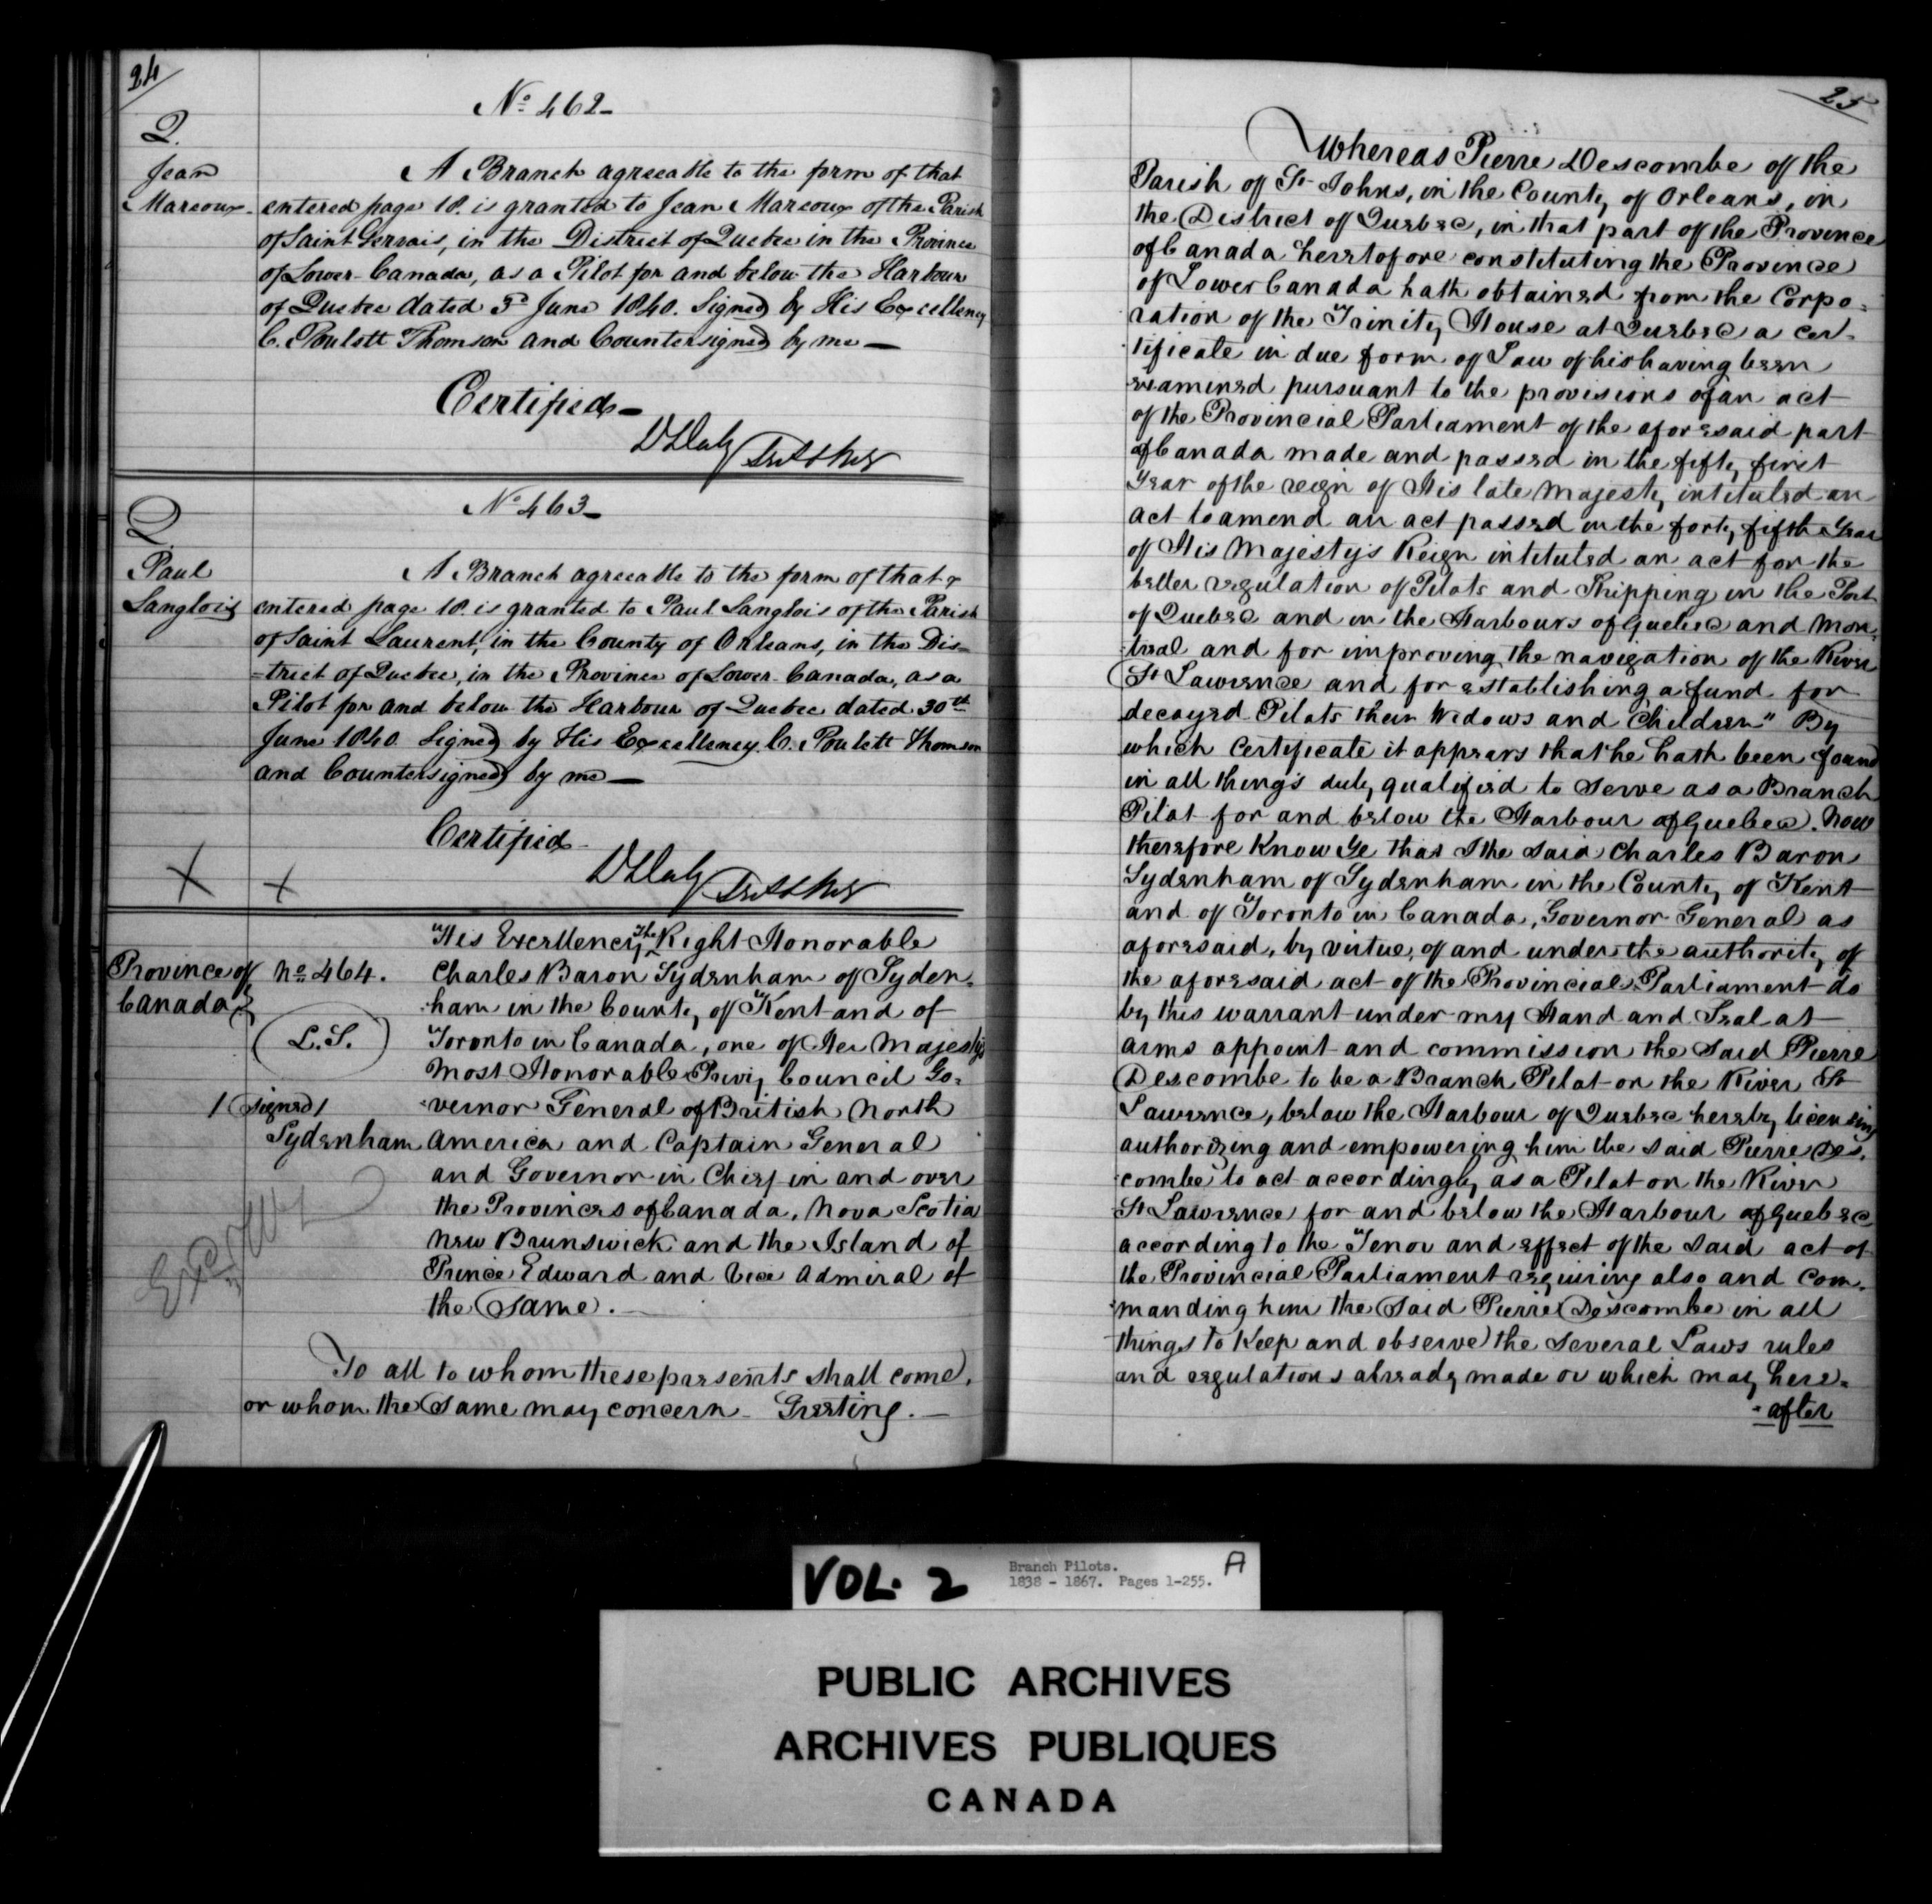 24
No 462
Q.
Jean
Marcoux
A Branch agreeable to the form of that
entered page 18. is granted to Jean Marcoux of the Parish
of Saint Gervais, in the District of Quebec in the Province
of Lower Canada, as a Pilot for and below the Harbour
of Quebec dated 5th June 1840. Signed by His Excellency
C. Poulett Thomson and Countersigned by me —
Certified —
D Daly
No 463
Q
Paul
Langlois
A Branch agreeable to the form of that
entered page 18. is granted to Paul Langlois of the Parish
of Saint Laurent, in the County of Orleans, in the Dis=
=trict of Quebec, in the Province of Lower Canada, as a
Pilot for and below the Harbour of Quebec dated 30th
June 1840 Signed by His Excellency C. Poulett Thomson
and Countersigned by me —
Certified
D Daly
X X
Province of
Canada
No 464.
L.S.
/Signed/
Sydenham
His Excellency The Right Honorable
Charles Baron Sydenham of Syden-
ham in the County of Kent and of
Toronto in Canada, one of Her Majesty's
Most Honorable Privy Council Go-
vernor General of British North
America and Captain General
and Governor in Chief in and over
the Provinces of Canada, Nova Scotia
New Brunswick and the Island of
Prince Edward and Vice Admiral of
the Same. —
To all to whom these presents shall come,
or whom the Same may concern — Greeting. —
25
Whereas Pierre Descombe of the
Parish of St Johns, in the County of Orleans, in
the District of Quebec, in that part of the Province
of Canada heretofore constituting the Province
of Lower Canada hath obtained from the Corpo-
ration of the Trinity House at Quebec a cer-
tificate in due form of Law of his having been
examined pursuant to the provisions of an act
of the Provincial Parliament of the aforesaid part
of Canada made and passed in the fifty first
Year of the reign of His late Majesty intituled an
act to amend an act passed in the forty fifth Year
of His Majesty's Reign intituled an act for the
better regulation of Pilots and Shipping in the Port
of Quebec and in the Harbours of Quebec and Mon-
treal and for improving the navigation of the River
St Lawrence and for establishing a fund for
decayed Pilots their Widows and Children" By
which Certificate it appears that he hath been found
in all things duly qualified to serve as a Branch
Pilot for and below the Harbour of Quebec. Now
therefore Know Ye that I the said Charles Baron
Sydenham of Sydenham in the County of Kent
and of Toronto in Canada, Governor General as
aforesaid, by virtue, of and under the authority of
the aforesaid act of the Provincial Parliament do
by this warrant under my Hand and Seal at
arms appoint and commission the Said Pierre
Descombe to be a Branch Pilot on the River St
Lawrence, below the Harbour of Quebec hereby licensing
authorizing and empowering him the said Pierre Des-
combe to act accordingly as a Pilot on the River
St Lawrence for and below the Harbour of Quebec
according to the Tenor and effect of the said act of
the Provincial Parliament requiring also and Com-
manding him the Said Pierre Descombe in all
things to Keep and observe the several Laws rules
and regulations already made or which may here-
- after
VOL. 2
Branch Pilots.
1838 - 1867. Pages 1-255.
A
PUBLIC ARCHIVES
ARCHIVES PUBLIQUES
CANADA